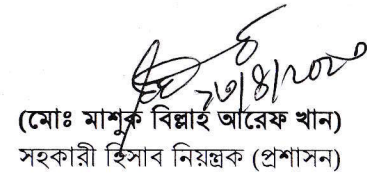 (মোঃ মাশুক বিল্লাহ আরেফ খান)
সহকারী হিসাব নিয়ন্ত্রক (প্রশাসন)